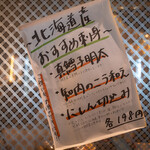 北海道産
おすすめ珍味〜
・真鱈子明太
・知内のニラ和え
・にしん切込み
各198円